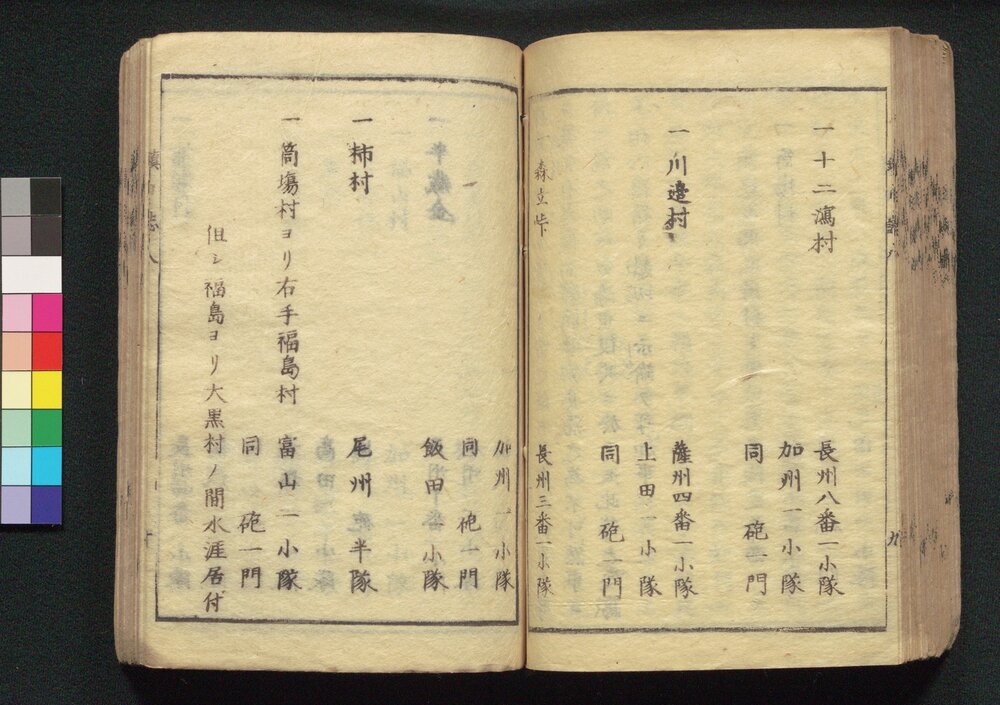 一十二潟村
長州八番一小隊
加州一小隊
同砲一門
一川邉村
薩州四番一小隊
上田一小隊
同砲一門
一森立峠
長州三番一小隊
加州一小隊
同砲一門
一半藏金
飯田一小隊
一柿村
尾州
半隊
一筒塲村ヨリ右手福島村
富山一小隊
同砲一門
但シ福島ヨリ大黒村ノ間水涯居付